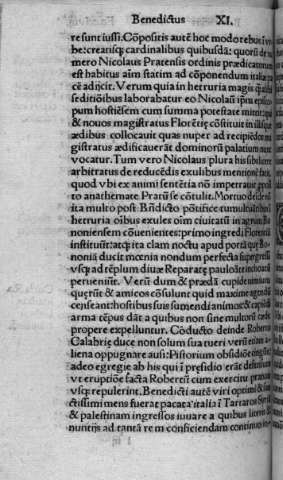 Benedictus XI.
re sunt iussi. Cōpositis autē hoc modo rebus
be: creatisq; cardinalibus quibusdā: quorū de nu
mero Nicolaus Pratensis ordinis prædicatorum
est habitus aim statim ad cōponendum italiæ pa
cē adijcit. Verum quia in hetruria magis
seditiōibus laborabatur eo Nicolaū ipm episco
pum hostiēsem cum summa potestate mittit: qui
& nouos magistratus Florētię cōstituit in illisq;
ædibus collocauit quas nuper ad recipiēdos ma
gistratus ædificauerāt dominorū palatium nunc
vocatur. Tum vero Nicolaus plura his libitere
arbitratus de reducēdis exulibus mentionē facit,
quod vbi ex animi sentētia nō imperrauit
to anathemate Pratū se cōtulit. Mortuo deide nō
ita multo post Bn̄dicto pōtifice: tumultuātibus
hetruria oībus exules oim ciuitatū in agrum Bo
noniensem cōuenientes: primo ingredi Florentiā
instituūt: atq; ita clam noctu apud portā quę Bo
noniā ducit mœnia nondum perfecta supergressi
vsq; ad tēplum diuæ Reparatę paulolāte inchoatū
peruenerūt. Verū dum & prædā cupide nimium
quęrūt & amicos cōsulunt quid maxime agendū
censeant: hostibus suis sumendi animos & capiēdi
arma tēpus dāt a quibus non sine multorū cæde
propere expelluntur. Cōducto deinde Roberto
Calabrię duce non solum sua tueri verū etiam a
liena oppugnare ausi: Pistorium obsidiōe cingūt
adeo egregie ab his qui ī presidio erāt defensum
vt eruptiōe facta Robertū cum exercitu prātum
vsq; repulerint. Benedicti autē viri optimi & san
ctissimi mens fuerat pacata italia ī Tartaros Syriā
& palestinam ingressos iuuare a quibus literis &
nuntijs ad tantā rem conficiendam continuo